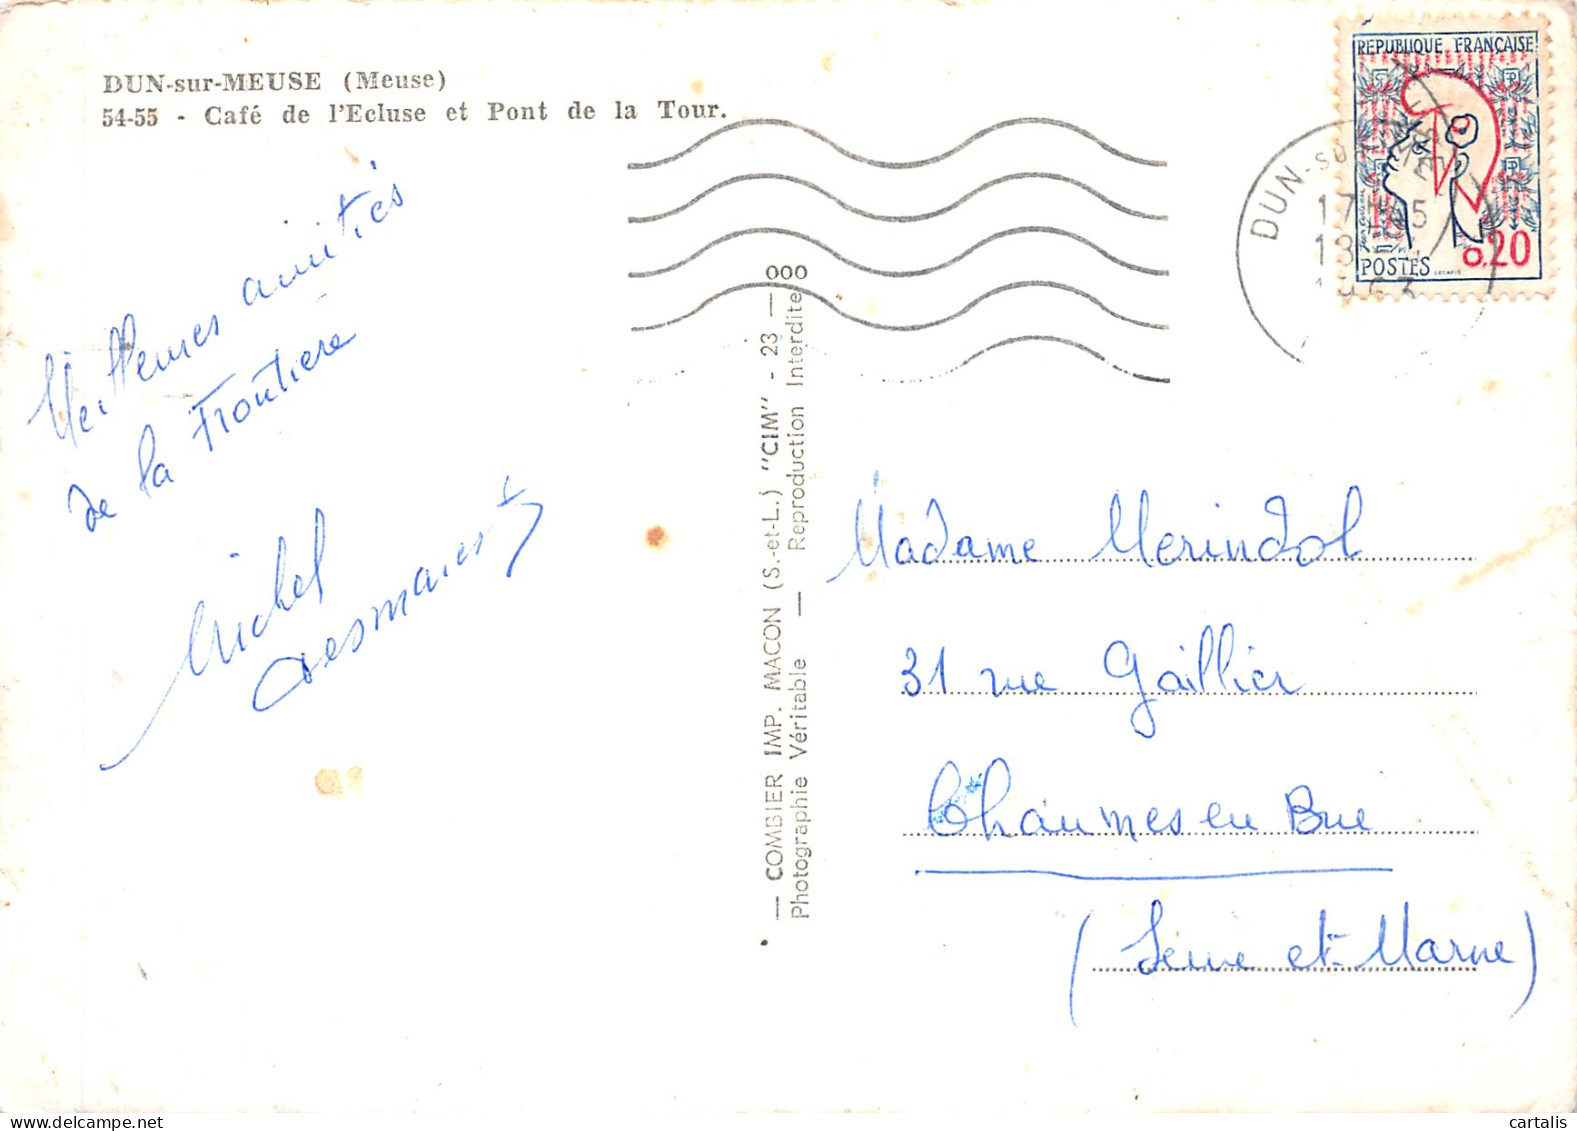 DUN-sur-MEUSE (Meuse)
54-55 - Café de l'Ecluse et Pont de la Tour.
Meilleures amitiés
de la Frontière
Michel
Desmarest
— COMBIER IMP. MACON (S.-et-L.) "CIM" - 23 — 000
Photographie Véritable — Reproduction Interdite
REPUBLIQUE FRANÇAISE
POSTES 0,20
DUN-SUR-MEUSE
1963
Madame Merindol
31 rue Gaillier
Chaumes en Brie
(Seine et Marne)
cartalis